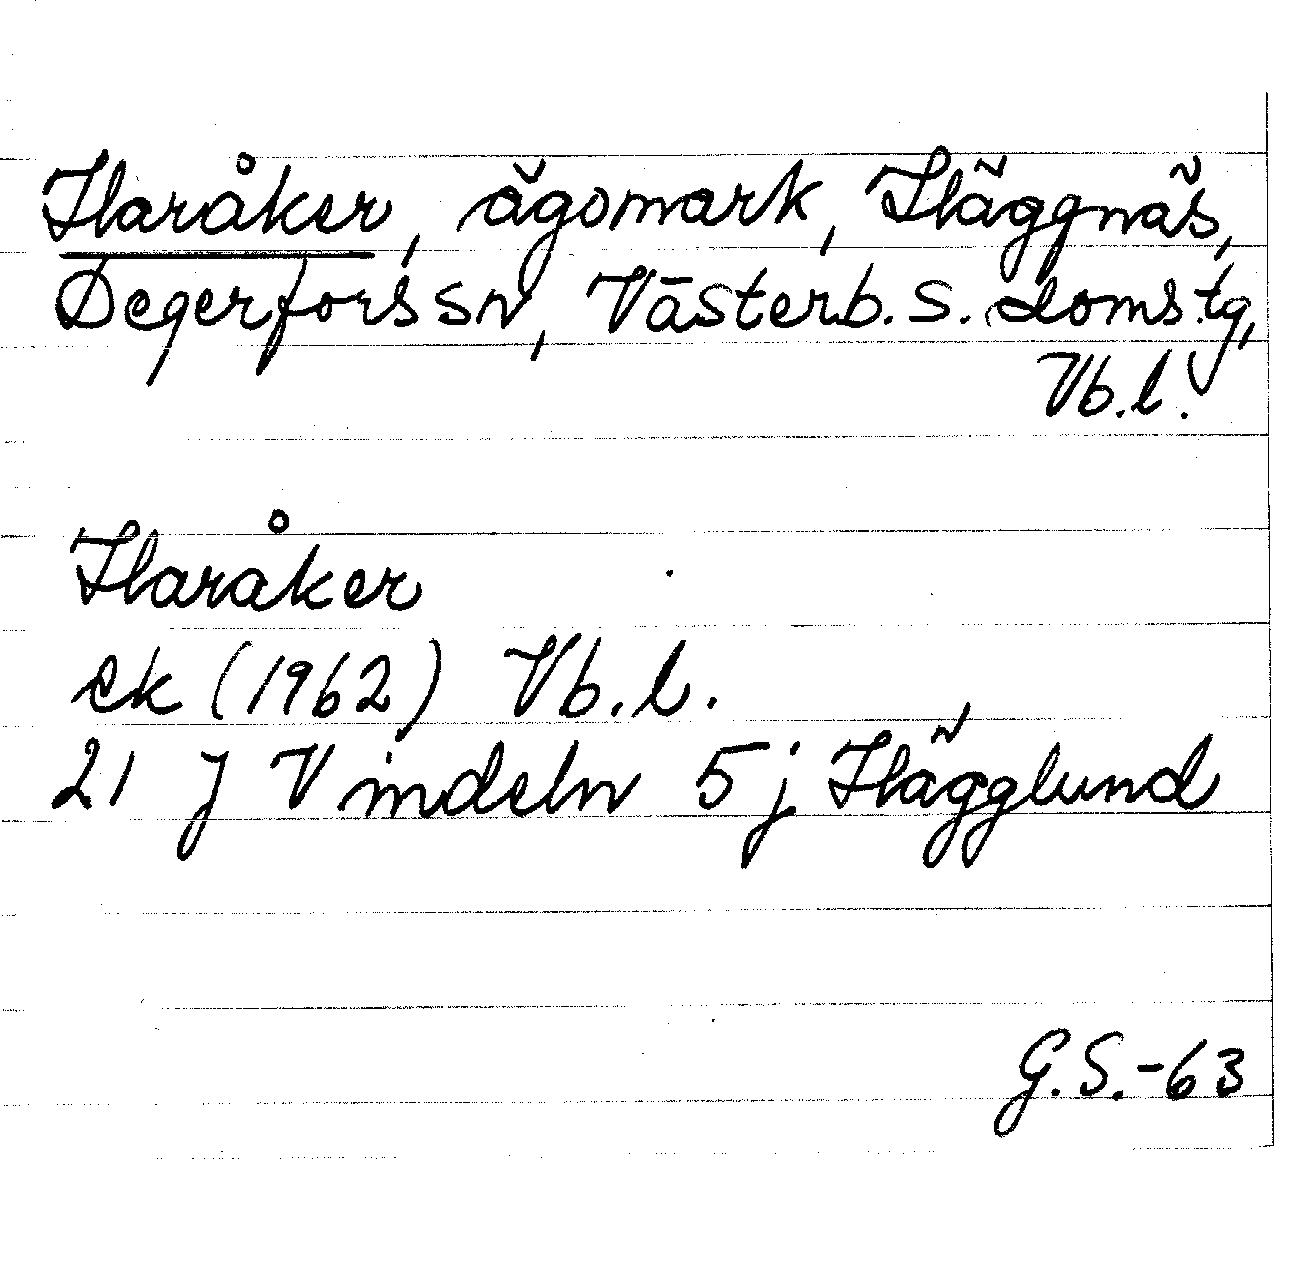 Haråker, ägomark, Häggnäs,
Degerfors sn, Västerb. s. doms.tg,
Vb.l.
Haråker
ek (1962) Vb.l.
21 J Vindeln 5 j Hägglund
G.S.-63